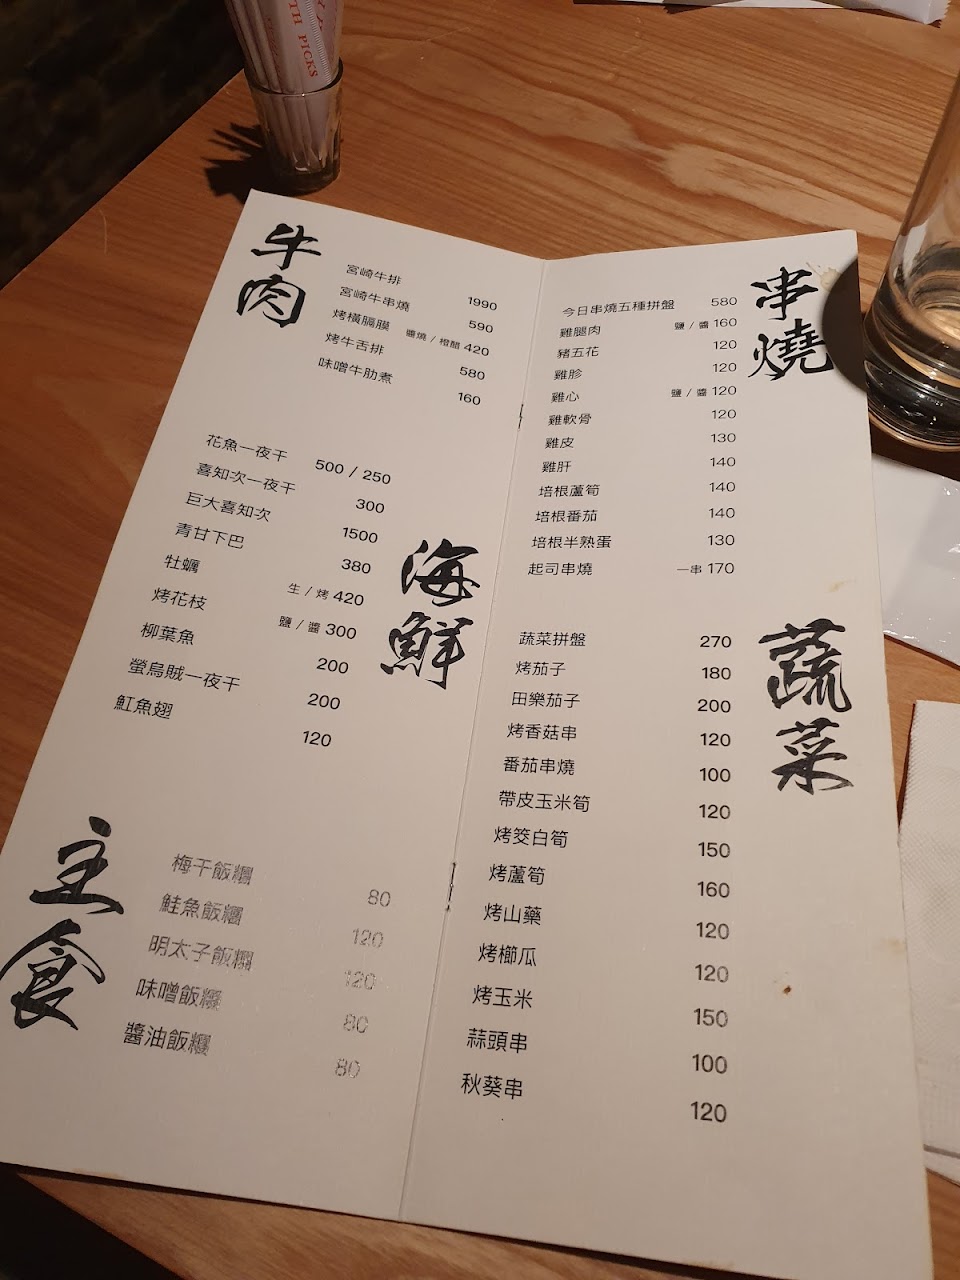 TH PICKS
牛肉
宮崎牛排 1990
宮崎牛串燒 590
烤橫膈膜 鹽燒 / 橙醋 420
烤牛舌排 580
味噌牛肋煮 160
海鮮
花魚一夜干 500 / 250
喜知次一夜干 300
巨大喜知次 1500
青甘下巴 380
牡蠣 生 / 烤 420
烤花枝 鹽 / 醬 300
柳葉魚 200
螢烏賊一夜干 200
魟魚翅 120
主食
梅干飯糰 80
鮭魚飯糰 120
明太子飯糰 120
味噌飯糰 80
醬油飯糰 80
串燒
今日串燒五種拼盤 580
雞腿肉 鹽 / 醬 160
豬五花 120
雞胗 120
雞心 鹽 / 醬 120
雞軟骨 120
雞皮 130
雞肝 140
培根蘆筍 140
培根番茄 140
培根半熟蛋 130
起司串燒 一串 170
蔬菜
蔬菜拼盤 270
烤茄子 180
田樂茄子 200
烤香菇串 120
番茄串燒 100
帶皮玉米筍 120
烤筊白筍 150
烤蘆筍 160
烤山藥 120
烤櫛瓜 120
烤玉米 150
蒜頭串 100
秋葵串 120